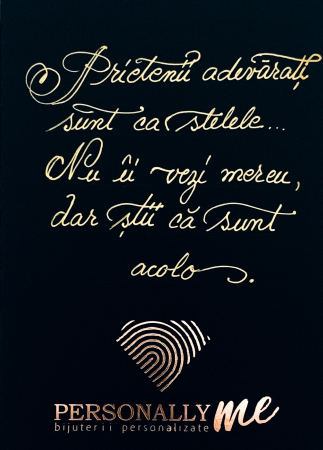 Prietenii adevărați
sunt ca stelele...
Nu îi vezi mereu,
dar știi că sunt
acolo.
PERSONALLY me
bijuterii personalizate